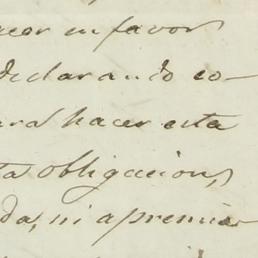 acer en favor
declarando co-
ara hacer esta
ta obligacion,
da, ni apremio